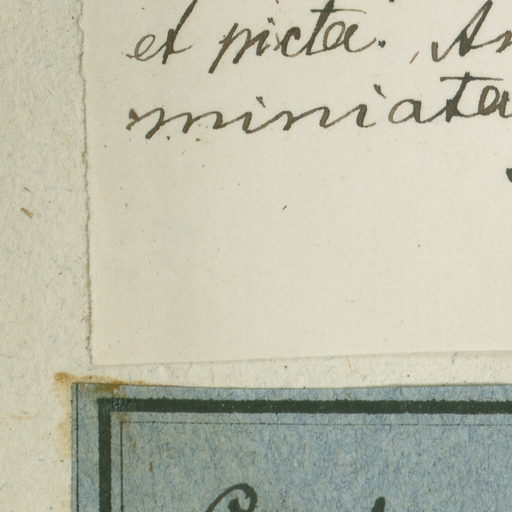 et picta. An
miniata